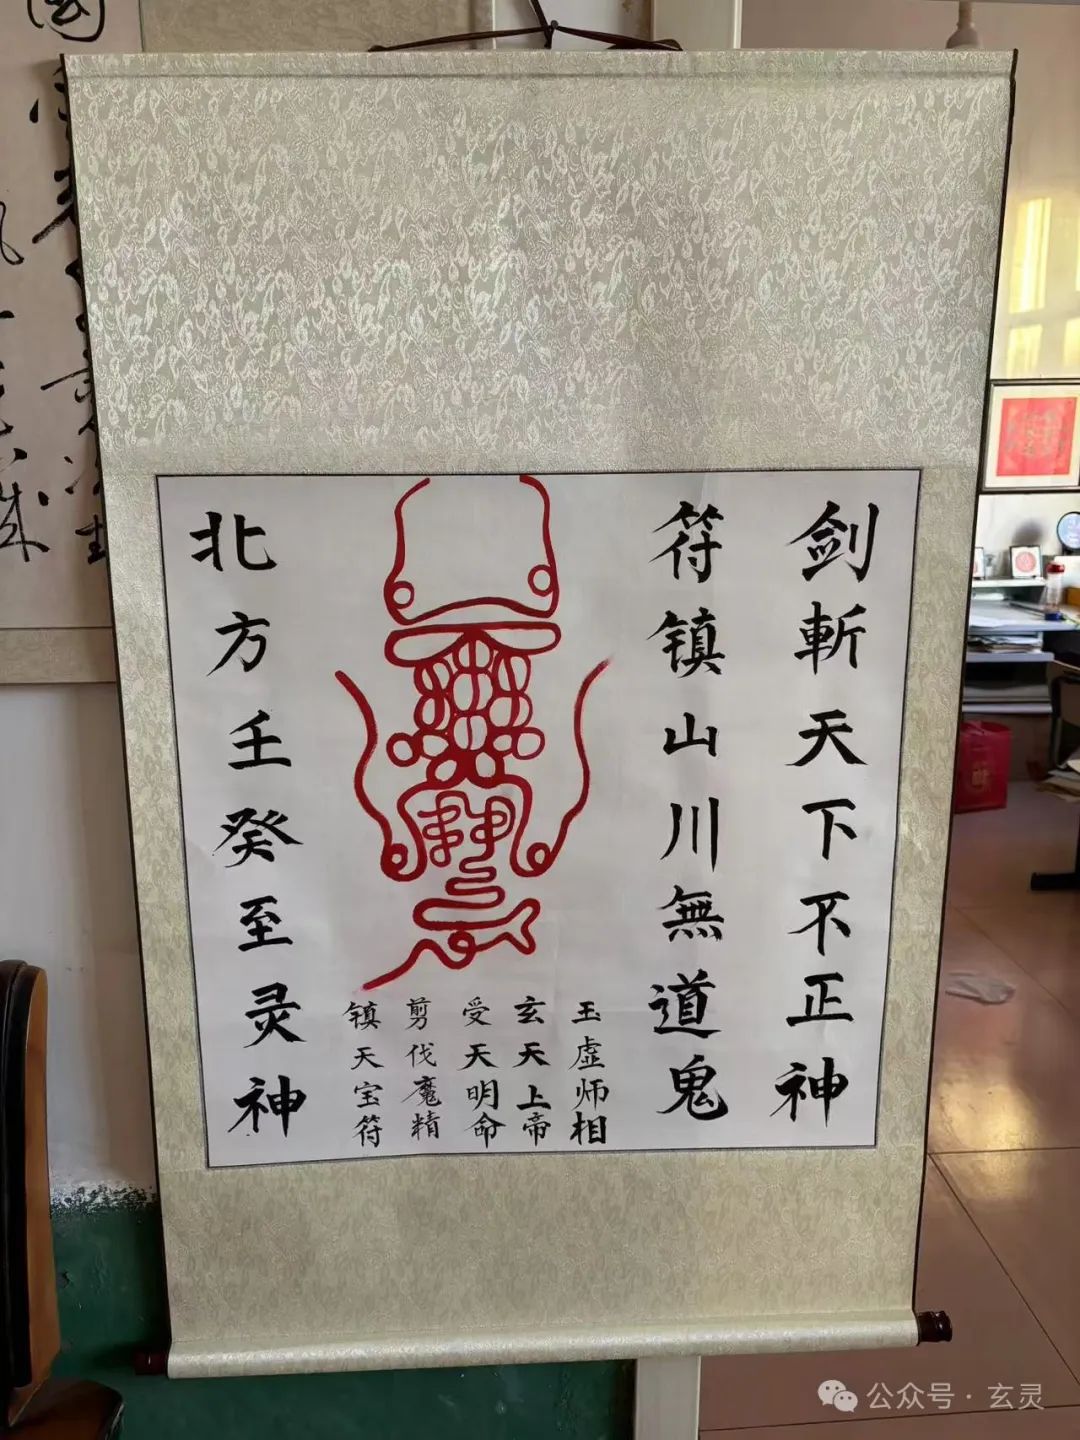 剑斬天下不正神
符镇山川無道鬼
玉虚师相
玄天上帝
受天明命
剪伐魔精
镇天宝符
北方壬癸至灵神
公众号·玄灵